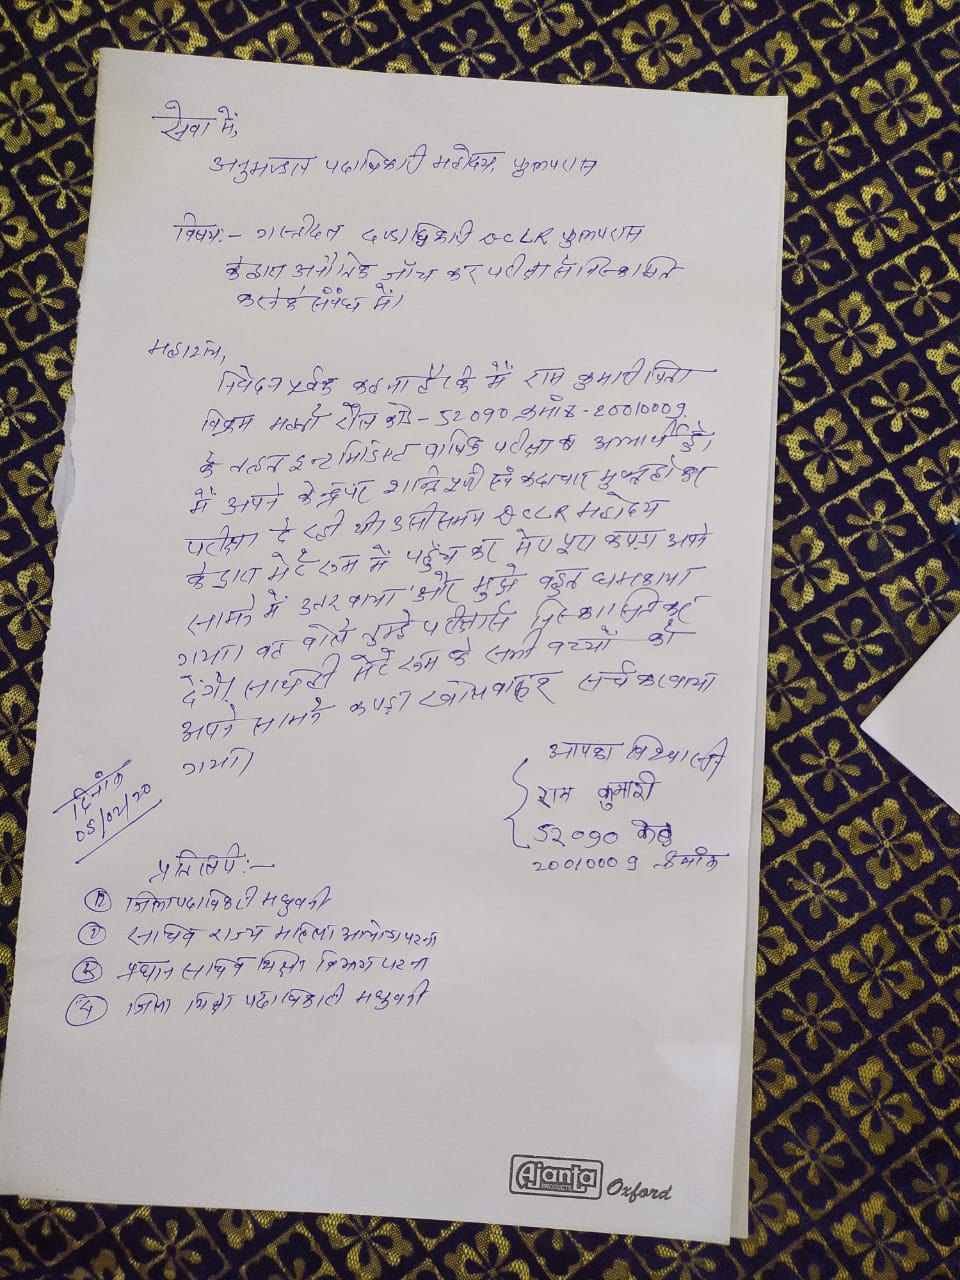 सेवा में,
अनुमण्डल पदाधिकारी महोदय, फुलपरास
विषय:- गस्तीदल दण्डाधिकारी DCLR फुलपरास
के द्वारा अनैतिक जाँच कर परीक्षा से निस्कासित
करने के संबंध में।
महाशय,
निवेदन पूर्वक कहना है कि मैं राम कुमारी पिता
विक्रम रौल कोड - 52090 क्रमांक - 20010009
के तहत इन्टरमिडिएट वार्षिक परीक्षा के अभ्यार्थी हूँ।
मैं अपने केन्द्र पर शान्ति पूर्ण एवं कदाचार मुक्त होकर
परीक्षा दे रही थी उसी समय DCLR महोदय
के द्वारा मेरे रूम में पहुँच कर मेरा पूरा कपड़ा अपने
सामने में उतरवाया और मुझे बहुत धमकाया
गया। वह बोले तुम्हे परीक्षा से निस्कासित कर
देंगे। साथ ही मेरे रूम के सभी बच्चों को
अपने सामने कपड़ा खोलवाकर सर्च करवाया
गया।
आपका विश्वासी
राम कुमारी
52090 कोड
20010009 क्रमांक
दिनांक
05/02/20
प्रतिलिपि:-
① जिला पदाधिकारी मधुबनी
② सचिव राज्य महिला आयोग पटना
③ प्रधान सचिव शिक्षा विभाग पटना
④ जिला शिक्षा पदाधिकारी मधुबनी
Ajanta
PRODUCTS
Oxford